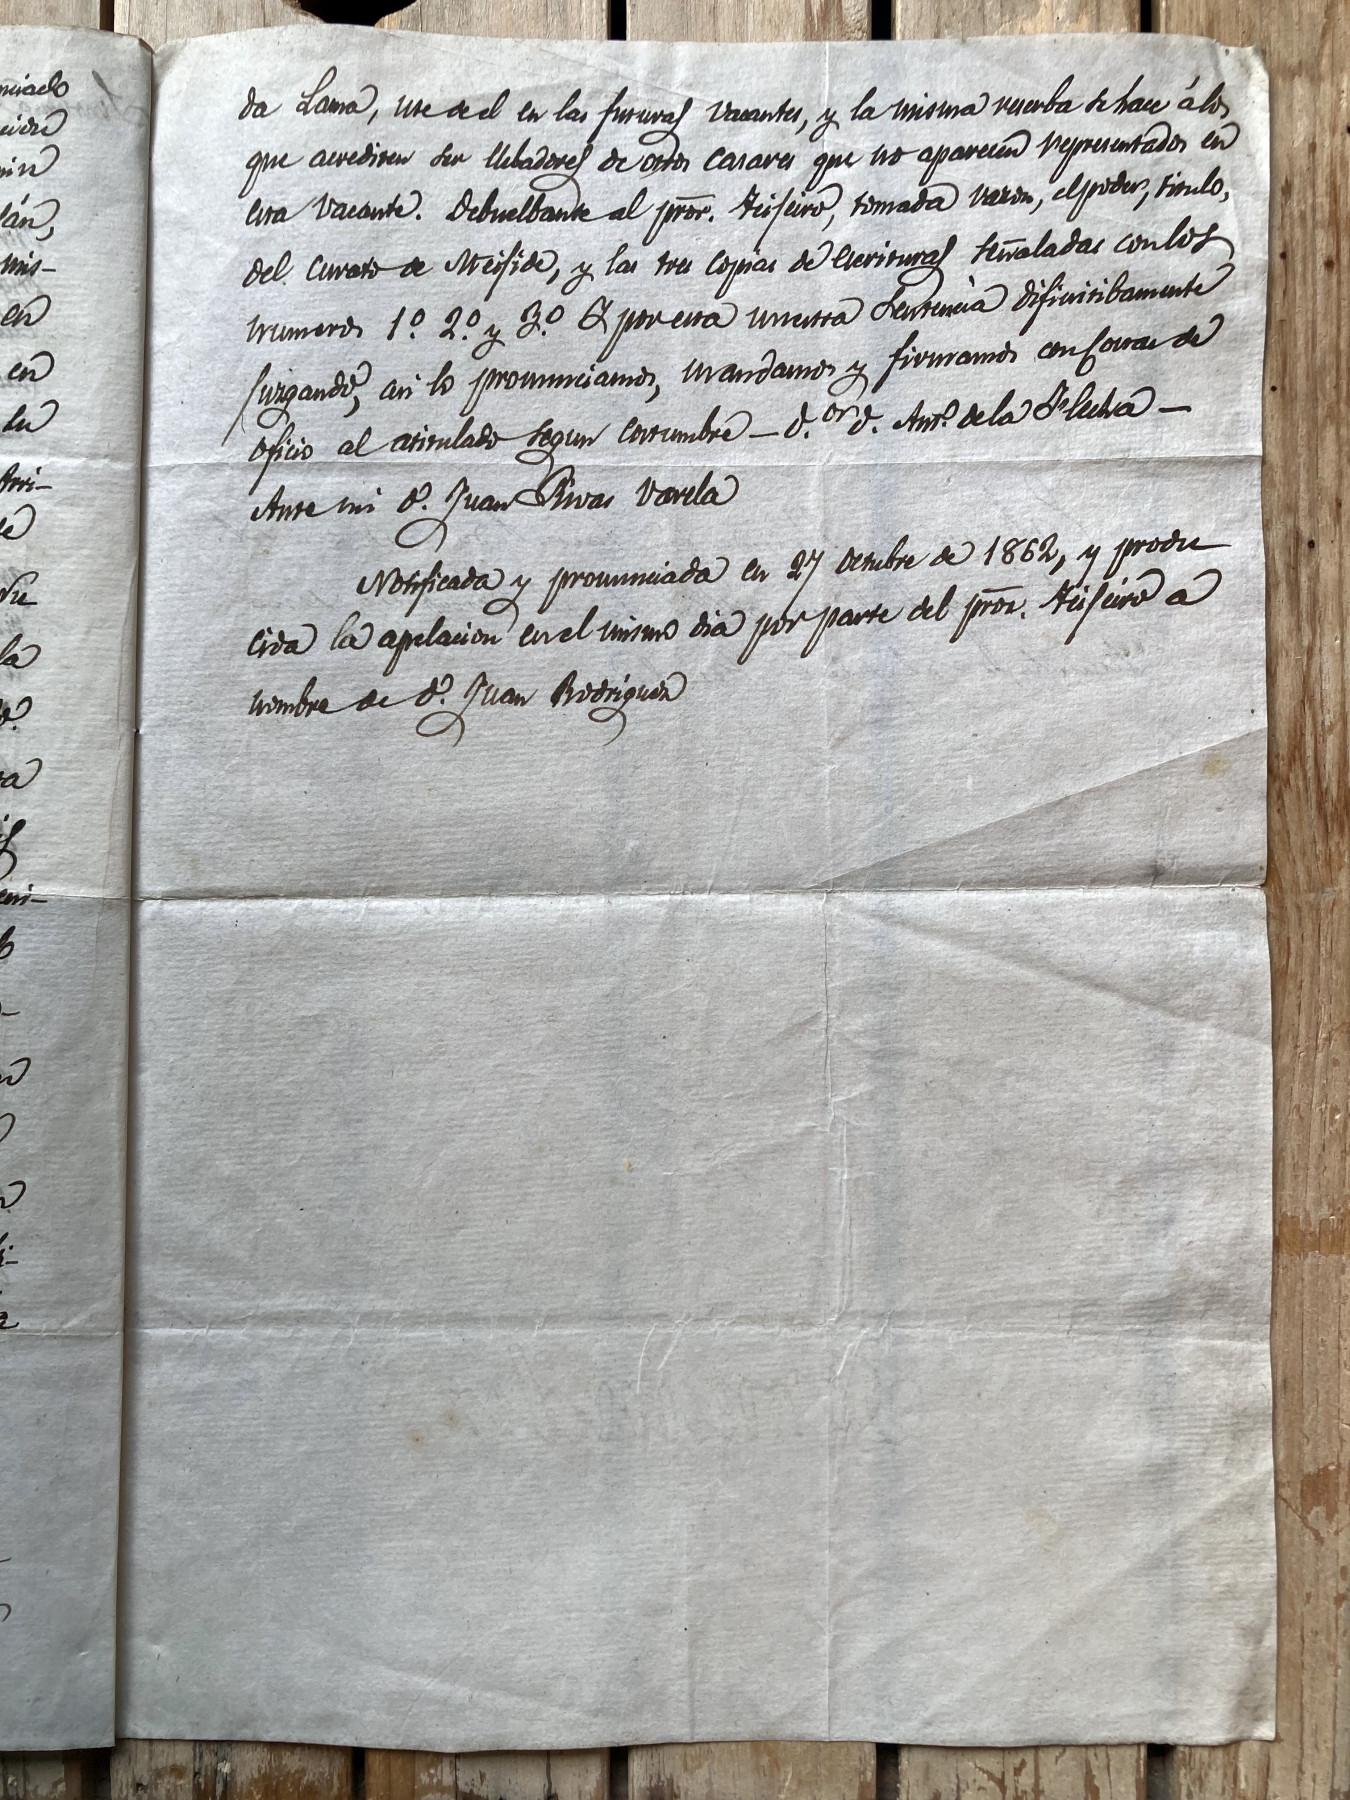 da Lama, use de el en las futuras vacantes, y la misma reserba se hace á los
que acrediten ser llebadores de otros casares que no aparecen representados en
esta vacante. Debuelbanse al pror. Teijeiro, tomada razon, el poder, titulo,
del curato de Meijide, y las tres copias de escrituras señaladas con los
numeros 1º. 2º. y 3º. Y por esta nuestra Sentencia difinitibamente
juzgando, asi lo pronunciamos, mandamos y firmamos con costas de
oficio al articulado segun costumbre — D.or D. Antº. de la Flecha —
Ante mi Dº. Juan Rivas Varela
Notificada y pronunciada en 27 octubre de 1862, y produ
cida la apelacion en el mismo dia por parte del pror. Teijeiro a
nombre de Dº. Juan Rodriguez